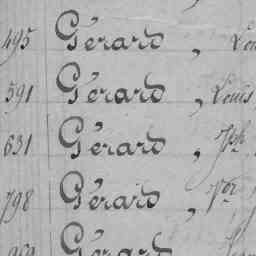 495 Gérard, Lou
591 Gérard, Louis
631 Gérard, Jph
798 Gérard, Vor
Gérard